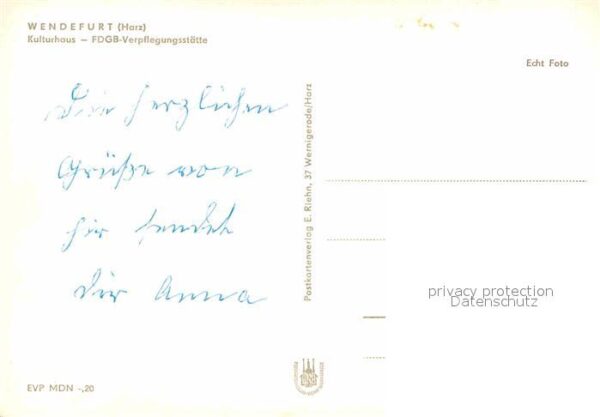 WENDEFURT (Harz)
Kulturhaus — FDGB-Verpflegungsstätte
Echt Foto
Die herzlichen
Grüße von
hir sendet
dir Anna
Postkartenverlag E. Riehn, 37 Wernigerode/Harz
privacy protection
Datenschutz
EVP MDN -,20